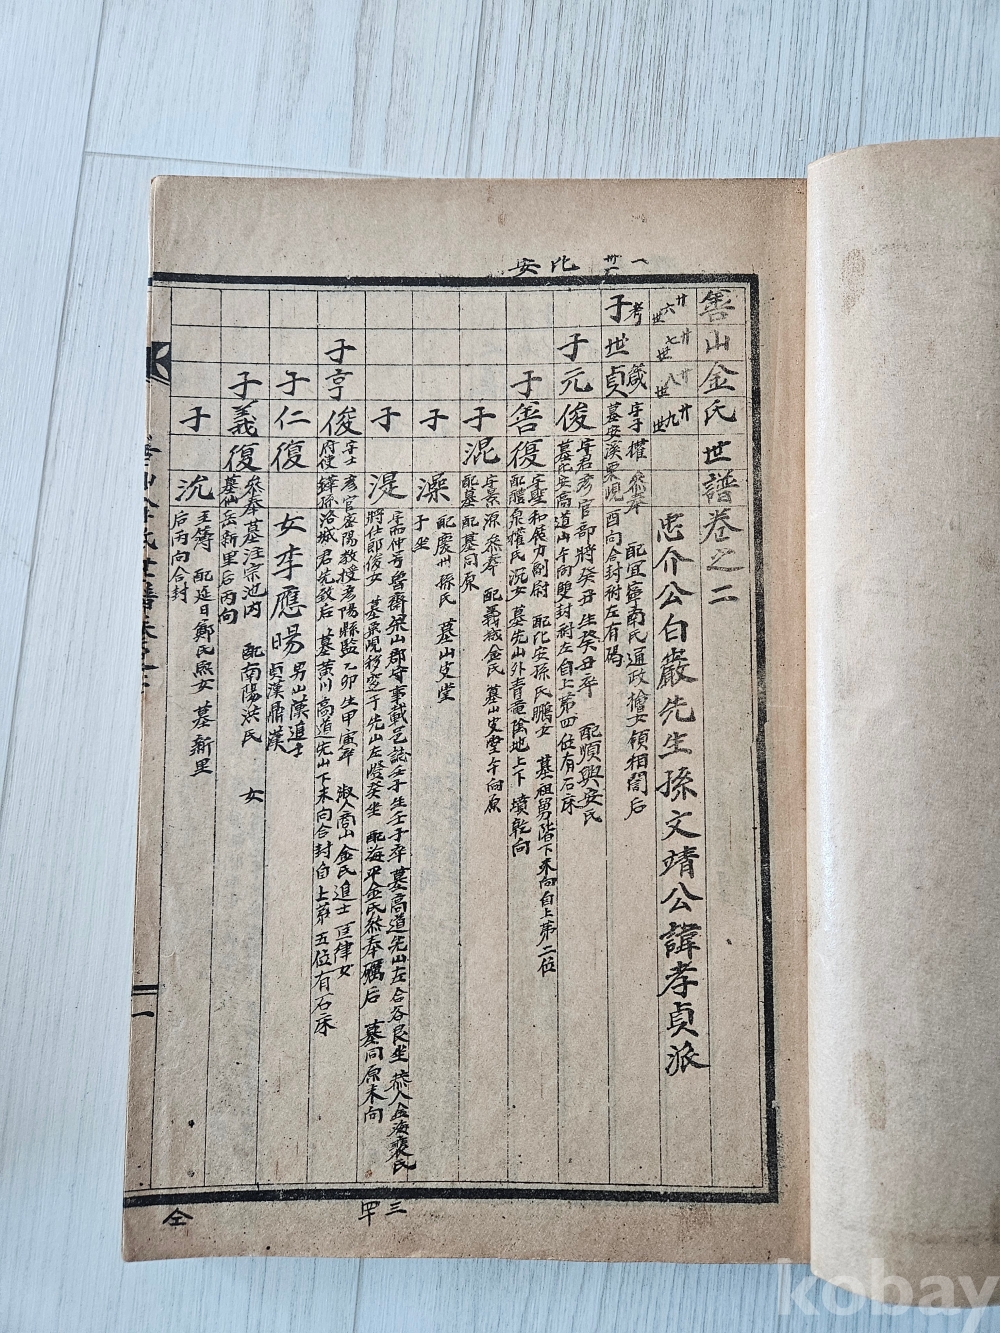 一 卅 比安
善山金氏世譜卷之二
廿六世 廿七世 廿八世 廿九世
忠介公白巖先生孫文靖公諱孝貞派
考 箴 字子權 參奉 配宜寧南氏通政女領相誾后
子世貞 墓安溪栗峴酉向合封祔左有碣
子元俊 字君彦官部將癸丑生癸丑卒 配順興安氏
墓比安高道山午向雙封祔左自上第四位有石床
子善復 字聖和展力副尉 配比安孫氏鵬女 墓祖舅階下未向自上第二位
配醴泉權氏沉女 墓先山外青龍陰地上下墳乾向
子混 字景源參奉 配義城金氏 墓山史堂午向原
配墓 配墓同原
子澡 配慶州孫氏 墓山史堂
子坐
子湜 字而仲号魯齋梁山郡守事載邑誌壬子生壬子卒 墓高道先山左合谷艮坐 恭人金海裵氏
將仕郎俊女 墓栗峴移窆于先山左燈癸坐 配海平金氏參奉礪后 墓同原未向
子亨俊 字士彦官密陽教授彦陽縣監乙卯生甲寅卒 淑人商山金氏進士匡律女
府使鋒孫洛城君先致后 墓黃川高道先山下未向合封自上第五位有石床
子仁復 女李應暘 男山漢進士
貞漢鼎漢
子義復 參奉 墓注宗池內 配南陽洪氏 女
墓仙岳新里后丙向
子沉 主簿 配延日鄭氏熙女 墓新里
后丙向合封
善山金氏世譜卷之二
一
三甲
仝
kobay